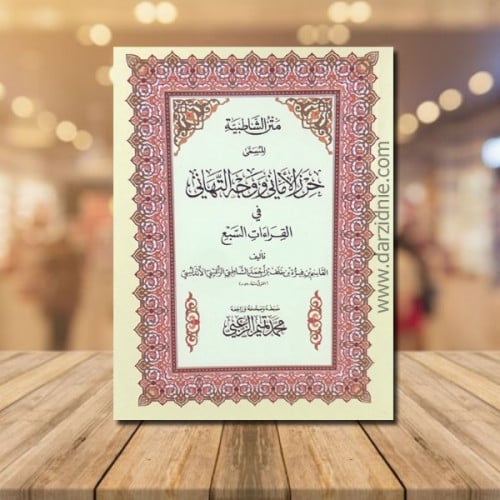 متن الشاطبية
المسمى
حرز الأماني ووجه التهاني
في
القراءات السبع
تأليف
القاسم بن فيره بن خلف بن أحمد الشاطبي الرعيني الأندلسي
ضبطه وصححه وراجعه
محمد تميم الزعبي
www.darzidnie.com